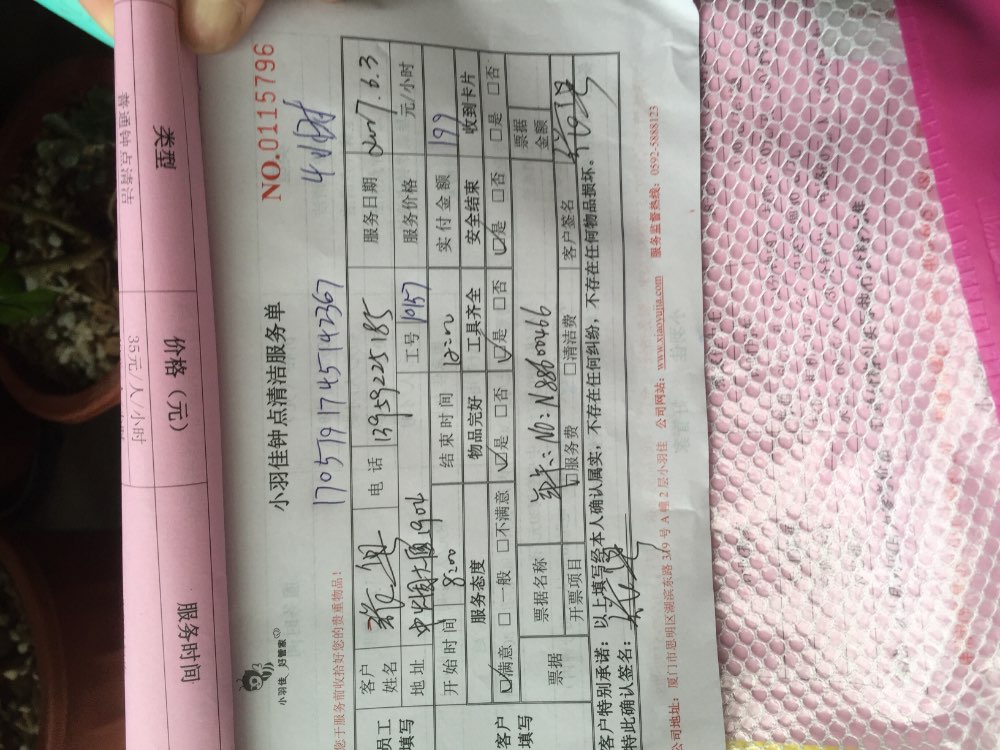 类型
价格（元）
服务时间
普通钟点清洁
35元/人/小时
小羽佳 好管家
小羽佳钟点清洁服务单
NO.0115796
您于服务前收拾好您的贵重物品！
4小时
员工填写
客户姓名
电话 13959225185
服务日期 2007.6.3
地址
904
工号 1957
服务价格 元/小时
开始时间 8:00
结束时间 12:00
实付金额 199
客户填写
服务态度 物品完好 工具齐全 安全结束 收到卡片
☑满意 □一般 □不满意 ☑是 □否 ☑是 □否 ☑是 □否 □是 □否
票据
票据名称
NO:N88600466
票据金额
开票项目 □服务费 □清洁费 客户签名
客户特别承诺：以上填写经本人确认属实，不存在任何纠纷，不存在任何物品损坏。
特此确认签名：
公司地址：厦门市思明区湖滨东路319号A幢2层小羽佳 公司网站：www.xiaoyujia.com 服务监督热线：0592-5888123